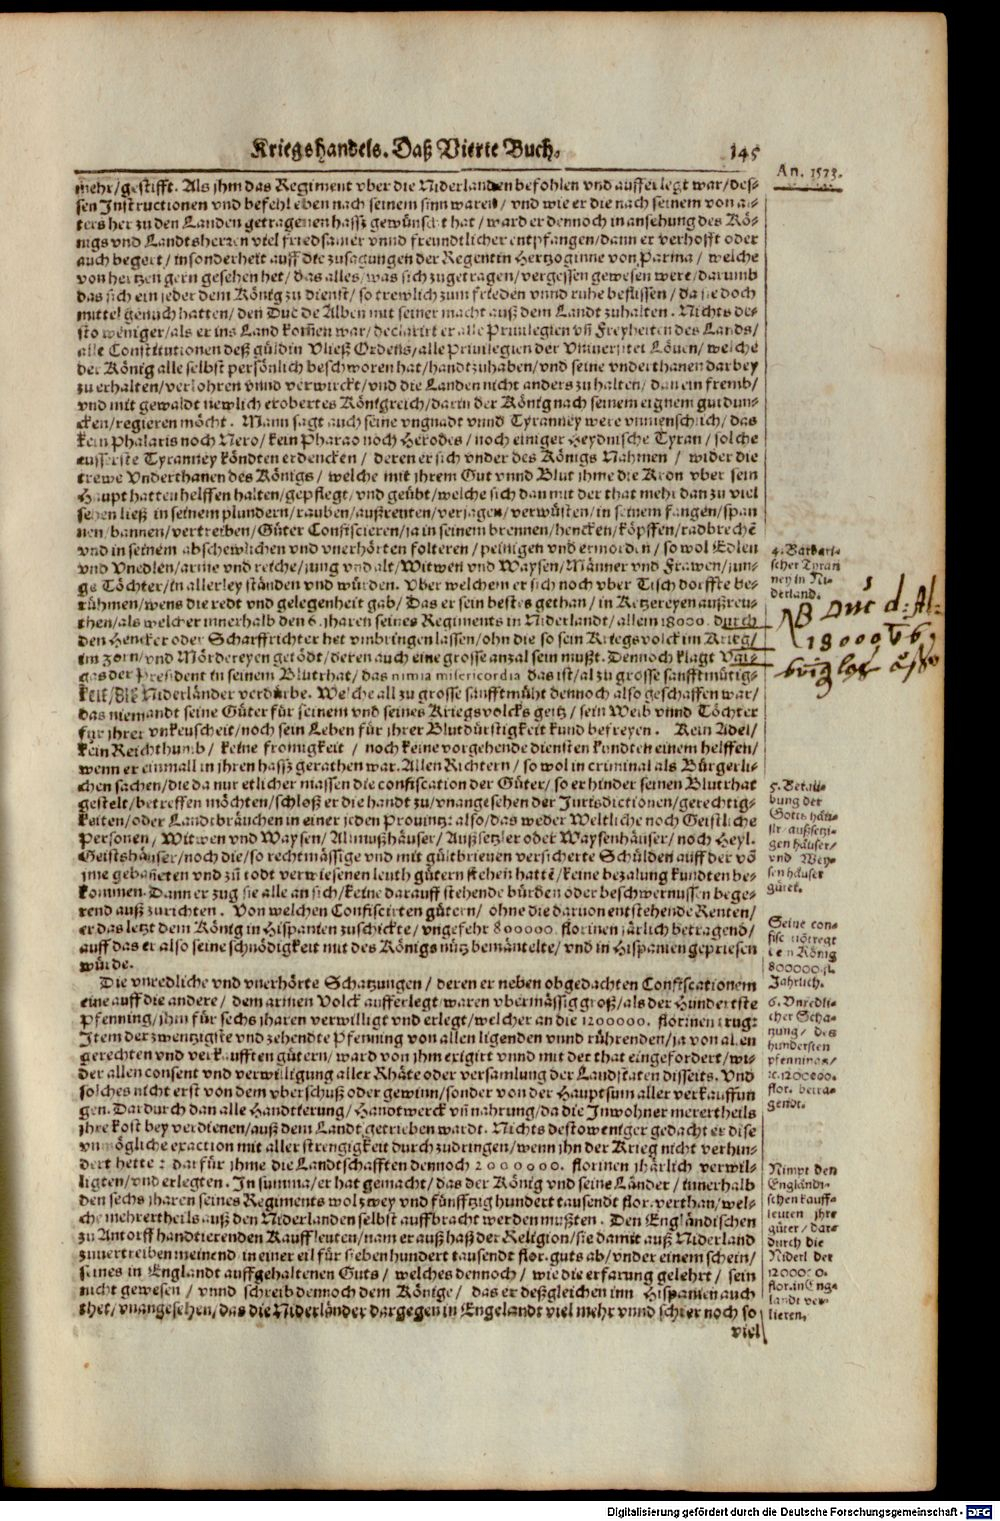 Kriegshandels. Daß Vierte Buch.
145
An. 1573.
mehr/gestifft. Als jhm das Regiment vber die Niderlanden befohlen vnd aufferlegt war/des-
sen Instructionen vnd befehl eben nach seinem sinn waren/ vnd wie er die nach seinem von al-
ters her zu den Landen getragenen hassz gewünscht hat/ ward er dennoch in ansehung des Kö-
nigs vnd Landtsherren viel friedsamer vnnd freundtlicher entpfangen/dann er verhofft oder
auch begert/ insonderheit auff die zusagungen der Regentin Hertzoginne von Parma/ welche
von hertzen gern gesehen het/ das alles/was sich zugetragen/vergessen gewesen were/darumb
das sich ein jeder dem König zu dienst/ so trewlich zum frieden vnnd ruhe beflissen/ da sie doch
mittel genuch hatten/ den Duc de Alben mit seiner macht auß dem Landt zuhalten. Nichts de-
sto weniger/als er ins Land kom̃en war/declarirt er alle Priuilegien vñ Freyheiten des Lands/
alle Constitutionen deß güldin Vließ Ordens/alle Priuilegien der Vniuersitet Löuen/ welche
der König alle selbst persönlich beschworen hat/handtzuhaben/vnd seine vnderthanen darbey
zu erhalten/verlohren vnnd verwirckt/vnd die Landen nicht anders zu halten/ dan ein fremb/
vnd mit gewaldt newlich erobertes Königreich/darin der König nach seinem eignem gutdun-
cken/regieren möcht. Mann sagt auch seine vngnadt vnnd Tyranney were vnmenschlich/ das
kein Phalaris noch Nero/ kein Pharao noch Herodes/ noch einiger Heydnische Tyran/ solche
eusserste Tyranney köndten erdencken/ deren er sich vnder des Königs Nahmen/ wider die
trewe Vnderthanen des Königs/ welche mit jhrem Gut vnnd Blut jhme die Kron vber sein
Haupt hatten helffen halten/gepflegt/vnd geübt/welche sich dan mit der that mehr dan zu viel
sehen ließ in seinem plundern/rauben/außrenten/verjagen/verwüsten/in seinem fangen/span
nen/bannen/vertreiben/Güter Confiscieren/ja in seinem brennen/hencken/köpffen/radbrechē
vnd in seinem abschewlichen vnd vnerhörten folteren/ peinigen vnd ermorden/ so wol Edlen
vnd Vnedlen/arme vnd reiche/jung vnd alt/Witwen vnd Waysen/Männer vnd Frawen/jun-
ge Töchter/in allerley ständen vnd würden. Vber welchem er sich noch vber Tisch dorffte be-
rühmen/wens die redt vnd gelegenheit gab/ Das er sein bestes gethan/ in Ketzereyen außreu-
then/als welcher innerhalb den 6. jharen seines Regiments in Niderlandt/ allein 18000. durch
den Hencker oder Scharffrichter het vmbringen lassen/ohn die so sein Kriegsvolck im Krieg/
im zorn/vnd Mördereyen getödt/deren auch eine grosse anzal sein mußt. Dennoch klagt Var-
gas der President in seinem Blutrhat/ das nimia misericordia das ist/al zu grosse sanfftmütig-
keit/die Niderländer verdürbe. Welche all zu grosse sanfftmüht dennoch also geschaffen war/
das niemandt seine Güter für seinem vnd seines Kriegsvolcks geitz/ sein Weib vnnd Töchter
für jhrer vnkeuscheit/noch sein Leben für jhrer Blutdürstigkeit kund befreyen. Kein Adel/
kein Reichthumb/ keine fromigkeit/ noch keine vorgehende diensten kundten einem helffen/
wenn er einmall in jhren hassz gerathen war. Allen Richtern/ so wol in criminal als Bürgerli-
chen sachen/die da nur etlicher massen die confiscation der Güter/ so er hinder seinen Blutrhat
gestelt/betreffen möchten/schloß er die handt zu/vnangesehen der Jurisdictionen/gerechtig-
keiten/oder Landtbräuchen in einer jeden Prouintz: also/das weder Weltliche noch Geistliche
Personen/ Witwen vnd Waysen/ Allmußhäuser/ Außsetzler oder Waysenhäuser/ noch Heyl.
Geistshäuser/noch die/so rechtmässige vnd mit gültbrieuen versicherte Schülden auff der vō
jme gebañeten vnd zū todt verwiesenen leuth gütern stehen hattē/keine bezalung kundten be-
kommen. Dann er zug sie alle an sich/keine darauff stehende bürden oder beschwernussen bege-
rend auß zurichten. Von welchen Confiscirten gütern/ ohne die daruon entstehende Renten/
er das letzt dem König in Hispanien zuschickte/ vngefehr 800000. florinen järlich betragend/
auff das er also seine schnödigkeit mit des Königs nutz bemäntelte/ vnd in Hispanien gepriesen
würde.
Die vnredliche vnd vnerhörte Schatzungen/ deren er neben obgedachten Confiscationem
eine auff die andere/ dem armen Volck aufferlegt/waren vbermässig groß/als der Hundertste
Pfenning/jhm für sechs jharen verwilligt vnd erlegt/welcher an die 1200000. florinen trug:
Item der zwentzigste vnd zehendte Pfenning von allen ligenden vnnd rührenden/ja von allen
gerechten vnd verkaufften gütern/ ward von jhm exigirt vnnd mit der that eingefordert/wi-
der allen consent vnd verwilligung aller Rhäte oder versamlung der Landstaten disseits. Vnd
solches nicht erst von dem vberschuß oder gewinn/sonder von der Hauptsum aller verkauffun
gen. Dardurch dan alle Handtierung/ Handtwerck vñ nahrung/da die Inwohner merertheils
jhre kost bey verdienen/auß dem Landt getrieben wardt. Nichts destoweniger gedacht er dise
vnmögliche exaction mit aller strengigkeit durchzudringen/wenn jhn der Krieg nicht verhin-
dert hette: darfür jhme die Landtschafften dennoch 2000000. florinen jhärlich verwil-
ligten/vnd erlegten. In summa/er hat gemacht/das der König vnd seine Länder/ innerhalb
den sechs jharen seines Regiments wol zwey vnd fünfftzig hundert tausendt flor. verthan/wel-
che mehrertheils auß den Niderlanden selbst auffbracht werden mußten. Den Engländischen
zu Antorff handtierenden Kauffleuten/nam er auß haß der Religion/sie damit auß Niderland
zuuertreiben meinend in einer eil für siebenhundert tausendt flor. guts ab/vnder einem schein/
seines in Englandt auffgehaltenen Guts/ welches dennoch/ wie die erfarung gelehrt/ sein
nicht gewesen/ vnnd schreib dennoch dem Könige/ das er deßgleichen inn Hispanien auch
thet/vnangesehen/das die Niderländer dargegen in Engelandt viel mehr vnnd schier noch so
viel
4. Barbari-
scher Tyran
ney in Ni-
derland.
18000
5. Betall-
bung der
Gotts häu-
ser/außsetzi-
gen häuser/
vnd Wey-
sen häuser
güter.
Seine con-
fisc
den König
800000. fl.
Jahrlich.
6. Vnredli-
cher Scha-
tzung/ des
hundersten
pfennings/
ic. 1200000.
flor. betra-
gendt.
Nimpt den
Engländi-
schen kauff-
leuten jhre
güter/ dar-
durch die
Niderl. der
1200000.
flor. an Eng-
landt ver-
lieren.
Digitalisierung gefördert durch die Deutsche Forschungsgemeinschaft - DFG